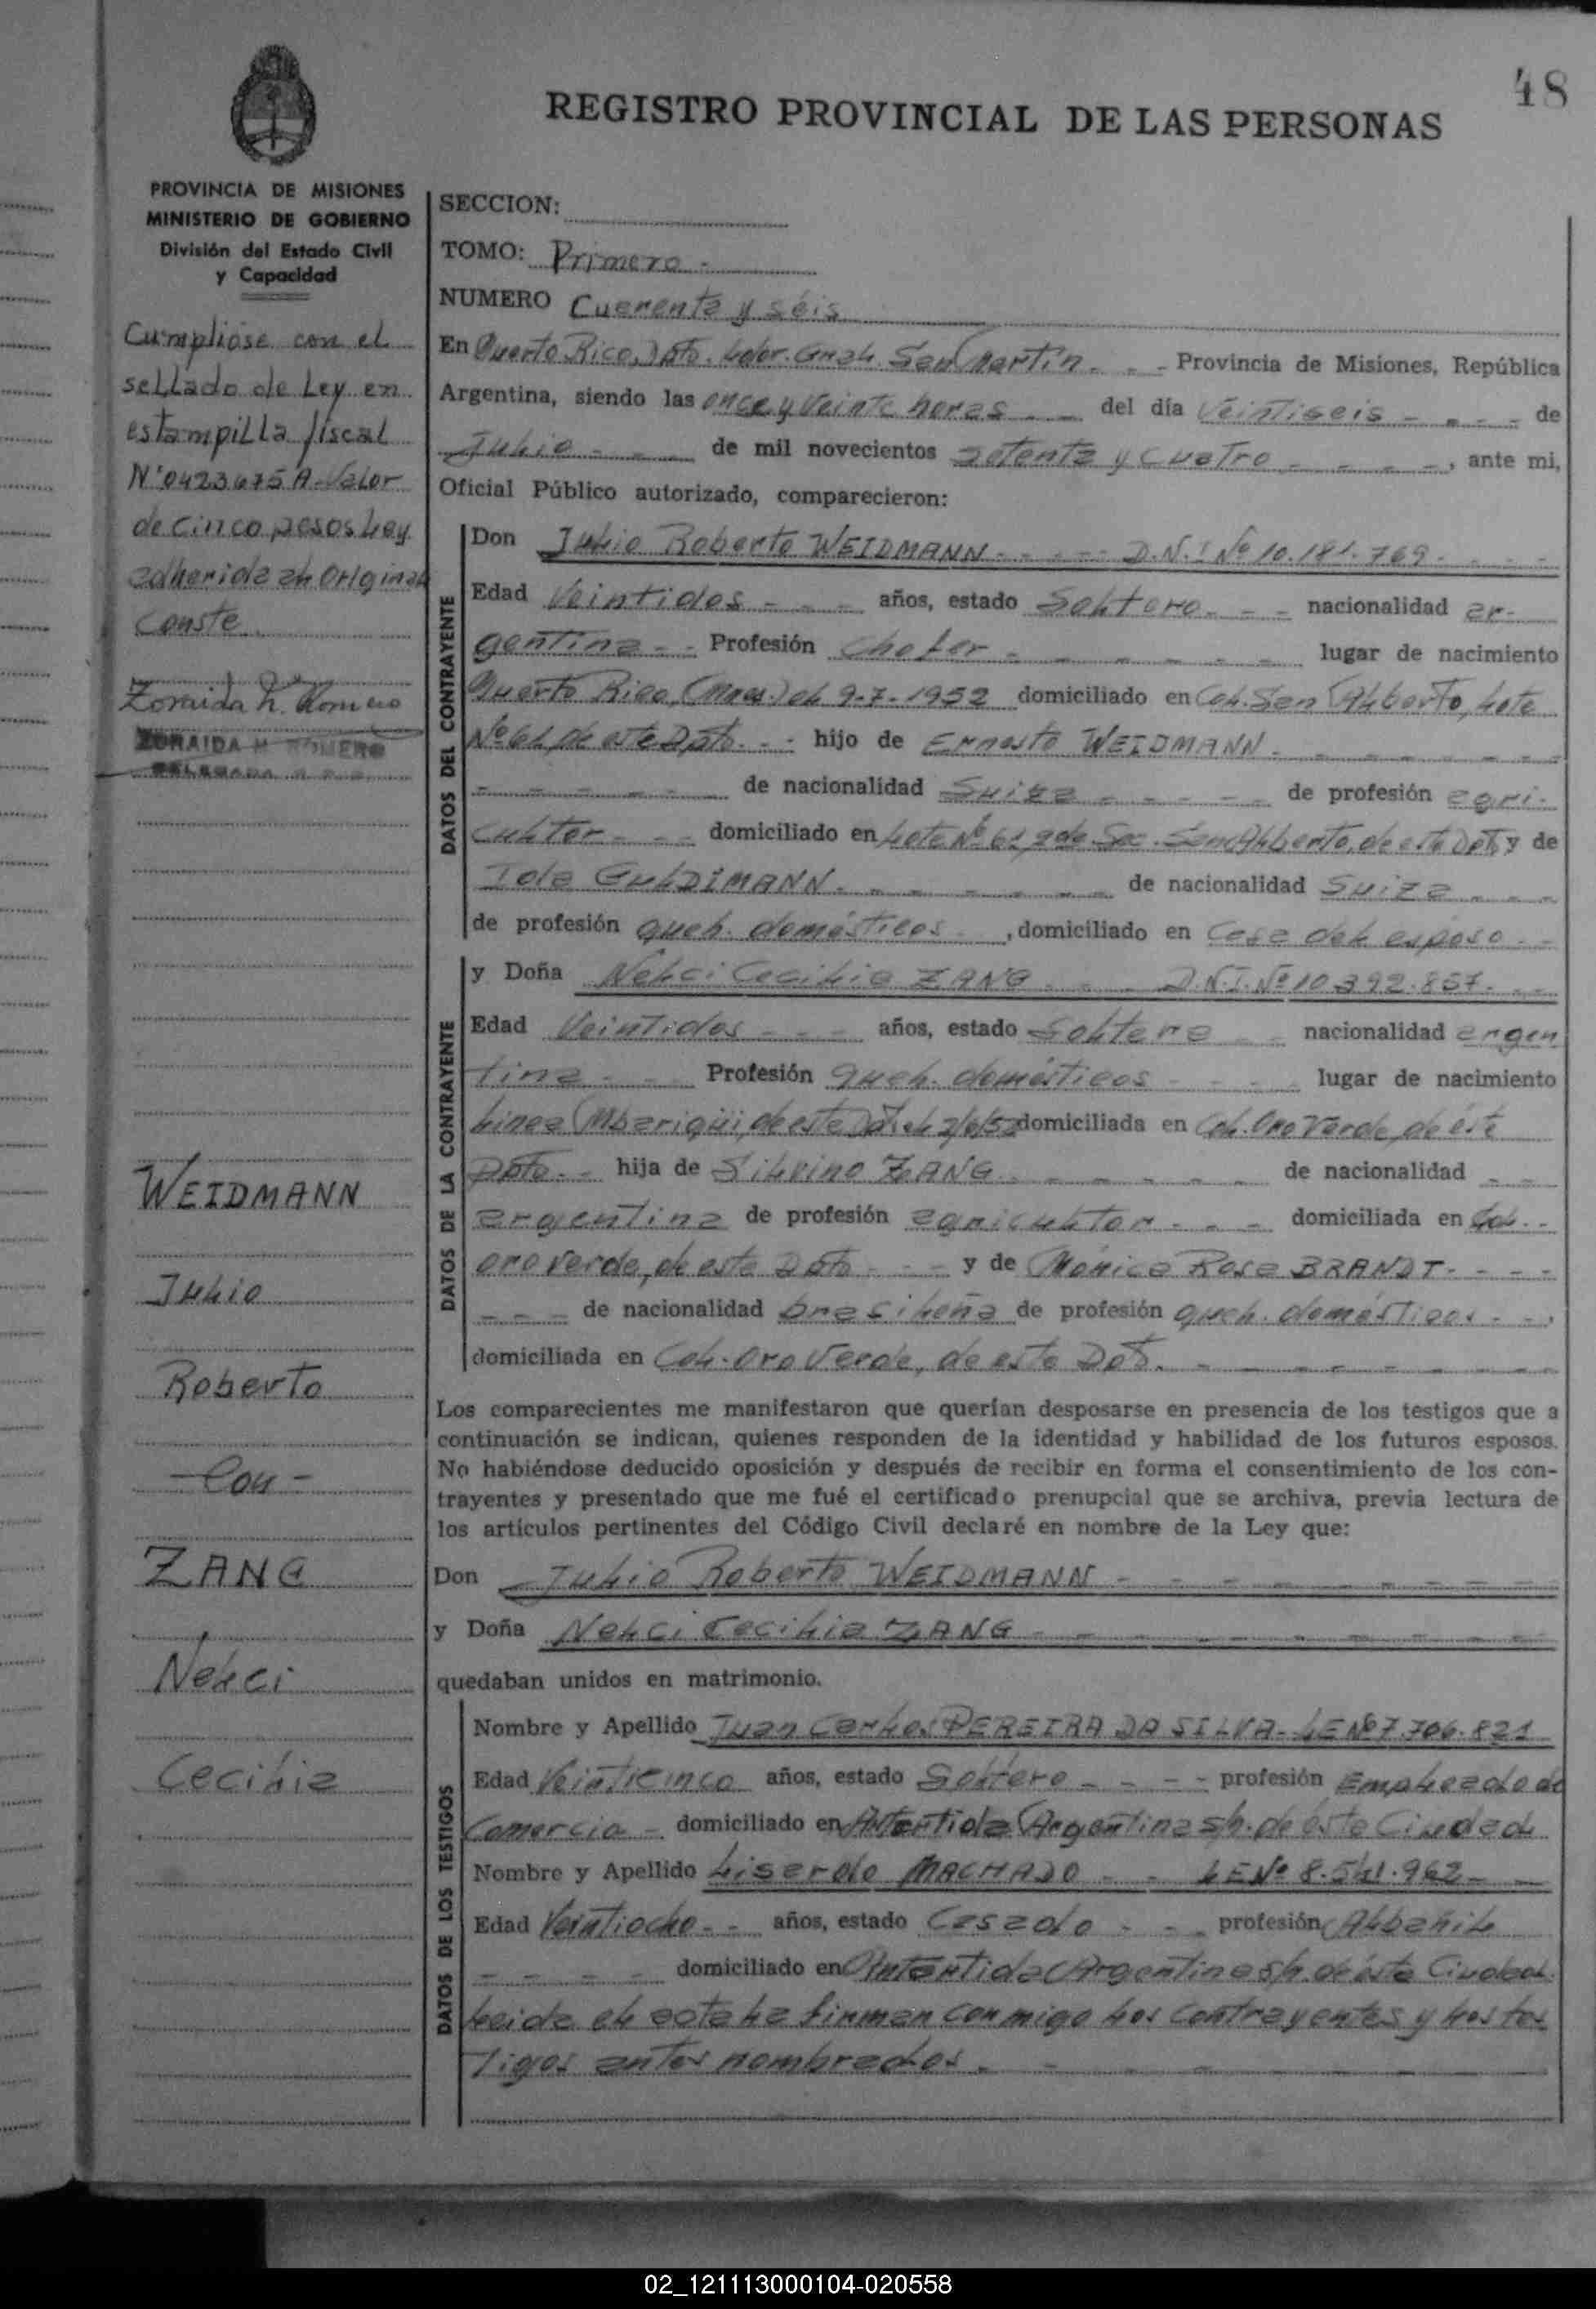 48
REGISTRO PROVINCIAL DE LAS PERSONAS
PROVINCIA DE MISIONES
MINISTERIO DE GOBIERNO
División del Estado Civil
y Capacidad
Cumplióse con el
sellado de Ley en
estampilla fiscal
Valor
de cinco pesos Ley
adherida en Original
Conste
Zoraida H. Romero
ZORAIDA H. ROMERO
DELEGADA
WEIDMANN
Julio
Roberto
-Con-
ZANG
Nelci
Cecilia
SECCION:
TOMO: Primero.-
NUMERO Cuarenta y seis
En Puerto Rico, Dpto. Ldor. Gral. San Martín - - - Provincia de Misiones, República
Argentina, siendo las once y veinte horas - - del día Veintiseis - - - - de
Julio - - - de mil novecientos setenta y cuatro - - - -, ante mi,
Oficial Público autorizado, comparecieron:
DATOS DEL CONTRAYENTE
Don Julio Roberto WEIDMANN - - - - D.N.I Nº 10.181.769. - - -
Edad Veintidos - - - años, estado Soltero - - - nacionalidad ar-
gentina - - Profesión Chofer - - - - - - lugar de nacimiento
Puerto Rico, (Mnes.) el 9-7-1952 domiciliado en Col. San Alberto, Lote
Nº 61 de este Dpto. - - hijo de Ernesto WEIDMANN. - - - - - -
- - - - - de nacionalidad Suiza - - - - - de profesión agri-
cultor - - - domiciliado en Lote Nº 61, San Alberto, de este Dpto, y de
Ida GULDIMANN. - - - - - - de nacionalidad Suiza - - -
de profesión queh. domésticos , domiciliado en Casa del esposo - -
DATOS DE LA CONTRAYENTE
y Doña Nelci Cecilia ZANG - - - D.N.I. Nº 10.392.857. - -
Edad Veintidos - - - años, estado Soltera - - nacionalidad argen
tina - - - Profesión queh. domésticos - - - - lugar de nacimiento
Linea Mbarigüi, de este Dpto. el 2/6/52 domiciliada en Col. Oro Verde, de éste
Dpto. - - hija de Silvino ZANG. - - - - - - de nacionalidad - -
argentina de profesión agricultor - - - domiciliada en Col. -
Oro Verde, de este Dpto - - - y de Mónica Rosa BRANDT - - - -
- - - de nacionalidad brasileña de profesión queh. domésticos - - .
domiciliada en Col. Oro Verde, de este Dpto. - - - - - - - -
Los comparecientes me manifestaron que querían desposarse en presencia de los testigos que a
continuación se indican, quienes responden de la identidad y habilidad de los futuros esposos.
No habiéndose deducido oposición y después de recibir en forma el consentimiento de los con-
trayentes y presentado que me fué el certificado prenupcial que se archiva, previa lectura de
los artículos pertinentes del Código Civil declaré en nombre de la Ley que:
Don Julio Roberto WEIDMANN - - - - - - - - -
y Doña Nelci Cecilia ZANG - - - - - - - - - - -
quedaban unidos en matrimonio.
DATOS DE LOS TESTIGOS
Nombre y Apellido Juan Carlos PEREIRA DA SILVA - LE Nº 7.706.821
Edad Veinticinco años, estado Soltero - - - - profesión Empleado de
Comercio - domiciliado en Antartida Argentina s/n. de ésta Ciudad
Nombre y Apellido Lisardo MACHADO - - LE Nº 8.541.962 - -
Edad Veintiocho - - años, estado Casado - - - profesión Albañil
- - - - domiciliado en Antartida Argentina s/n. de ésta Ciudad.
Leida el acta la firman conmigo los Contrayentes y los tes
tigos antes nombrados. - - - - -
02_121113000104-020558